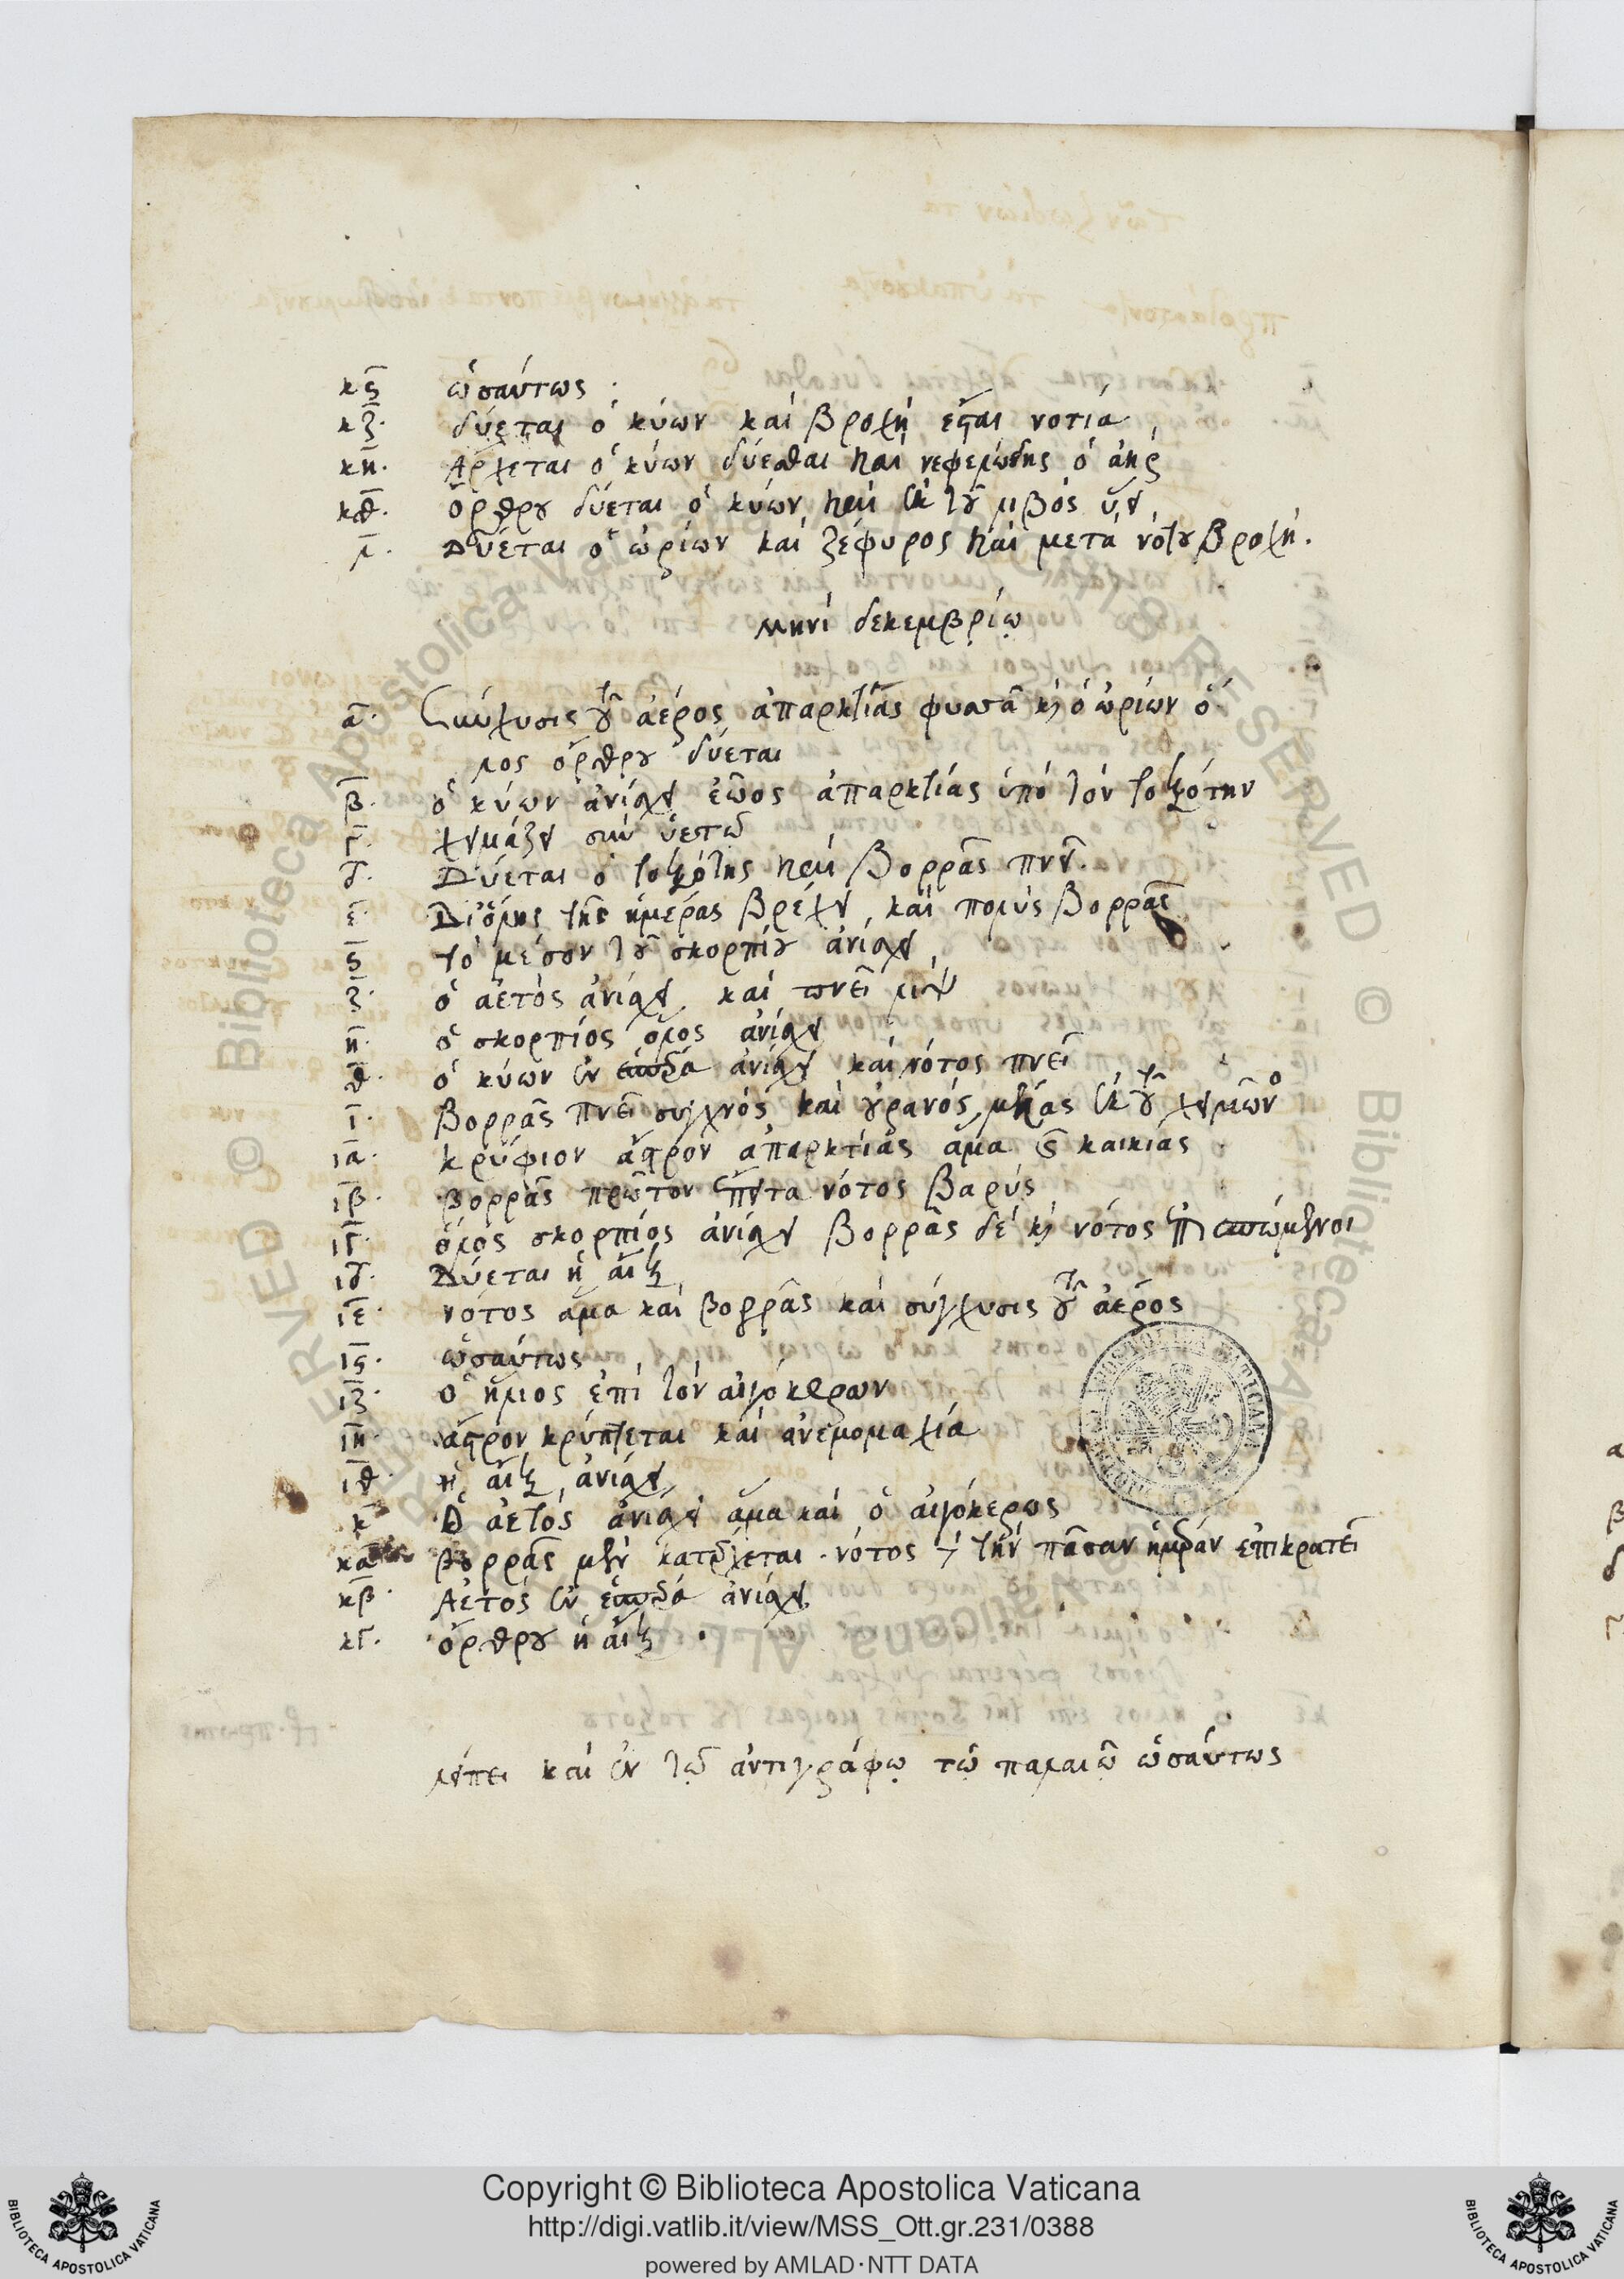 κϛ ὡσαύτως ·
κζ· δύεται ὁ κύων καὶ βροχὴ ἔσται νοτία
κη· Ἄρχεται ὁ κύων δύεσθαι καὶ νεφελώδης ὁ ἀὴρ
κθ· ὄρθρου δύεται ὁ κύων καὶ ἐκ τοῦ λιβὸς ὕει
λ· Δύεται ὁ ὠρίων καὶ ζέφυρος καὶ μετὰ νότου βροχή.
Μηνὶ δεκεμβρίῳ
α· Σύγχυσις τοῦ ἀέρος ἀπαρκτίας φυσᾶ κ ὁ ὠρίων ὅ
λος ὄρθρου δύεται
β· ὁ κύων ἀνίσχει ἑῶος ἀπαρκτίας ὑπὸ τὸν τοξότην
γ· χειμάζει σὺν ὑετῷ
δ· Δύεται ὁ τοξότης καὶ βορρᾶς πνεῖ.
ε· Δι' ὅλης τῆς ἡμέρας βρέχει, καὶ πολὺς βορρᾶς
ϛ τὸ μέσον τοῦ σκορπίου ἀνίσχει
ζ· ὁ ἀετὸς ἀνίσχει, καὶ πνεῖ λίψ
η· ὁ σκορπίος ὅλος ἀνίσχει
θ· ὁ κύων ἐν ἑσπέρᾳ ἀνίσχει καὶ νότος πνεῖ
ι· βορρᾶς πνεῖ συχνός καὶ οὐρανός, μέλας ἐκ τοῦ χειμῶνο
ια· κρύφιον ἄστρον ἀπαρκτίας ἅμα καικίας
ιβ· βορρᾶς πρῶτον ἔπειτα νότος βαρύς
ιγ· ὅλος σκορπίος ἀνίσχει βορρᾶς δὲ κ νότος
ιδ· Δύεται ἡ αἴξ
ιε· νότος ἅμα καὶ βορρᾶς καὶ σύγχυσις τοῦ ἀέρος
ιϛ· ὡσαύτως
ιζ· ὁ ἥλιος ἐπὶ τὸν αἰγόκερων
ιη· ἄστρον κρύπτεται καὶ ἀνεμομαχία
ιθ· ἡ αἴξ ἀνίσχει
κ Ὁ ἀετὸς ἀνίσχει ἅμα καὶ ὁ αἰγόκερως
κα βορρᾶς μὲν κατέρχεται · νότος τὴν πᾶσαν ἡμέραν ἐπικρατεῖ
κβ· Ἀετὸς ἐν ἑσπέρᾳ ἀνίσχει
κγ· ὄρθρου ἡ αἴξ ·
λείπει καὶ ἐν τῷ ἀντιγράφῳ τῷ παλαιῷ ὡσαύτως
Copyright © Biblioteca Apostolica Vaticana
http://digi.vatlib.it/view/MSS_Ott.gr.231/0388
powered by AMLAD·NTT DATA
BIBLIOTECA APOSTOLICA VATICANA
BIBLIOTECA APOSTOLICA VATICANA